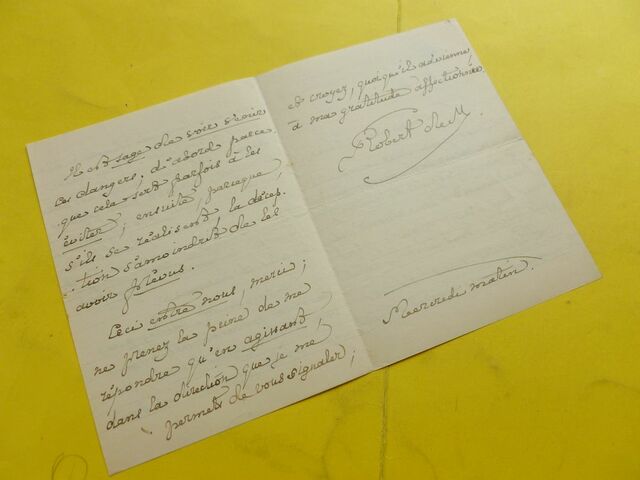 Il est sage de voir venir
les dangers; d'abord parce
que cela sert parfois à les
éviter; ensuite, parceque,
s'ils se réalisent, la décep-
-tion s'amoindrit de les
avoir prévus.
Ceci entre nous, merci;
ne prenez la peine de me
répondre qu'en agissant
dans la direction que je me
permets de vous signaler;
et croyez, quoiqu'il advienne,
à ma gratitude affectionnée,
Robert de M.
Mercredi matin.